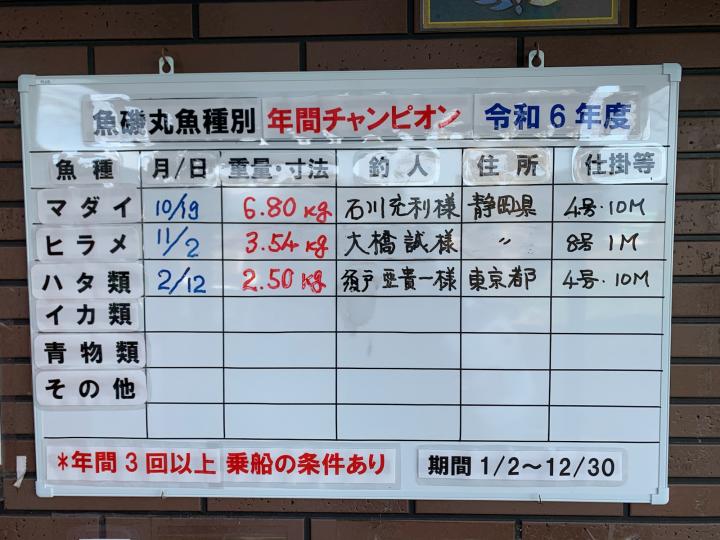 魚磯丸魚種別 年間チャンピオン 令和6年度
魚種 月/日 重量・寸法 釣人 住所 仕掛等
マダイ 10/19 6.80kg 石川充利様 静岡県 4号・10M
ヒラメ 11/2 3.54kg 大橋誠様 〃 8号 1M
ハタ類 2/12 2.50kg 須戸亜貴一様 東京都 4号・10M
イカ類
青物類
その他
*年間3回以上 乗船の条件あり 期間1/2〜12/30